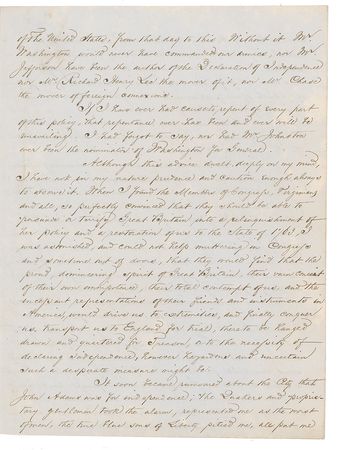 of the United States, from that day to this. Without it Mr
Washington would never have commanded our armies, nor Mr
Jefferson have been the author of the Declaration of Independence
nor Mr. Richard Henry Lee the mover of it, nor Mr Chase
the mover of foreign connexions.
If I have ever had cause to repent of any part
of this policy, that repentance ever has been and ever will be
unavailing. I had forgot to say, nor had Mr Johnston
ever been the nominator of Washington for General...
Although this advice dwelt deeply on my mind,
I have not in my nature prudence and caution enough always
to observe it. When I found the Members of Congress Virginians
and all, so perfectly convinced that they should be able to
persuade or terrify Great Britain into a relinquishment of
her policy and a restoration of us to the State of 1763, I
was astonished and could not help muttering in Congress
and sometimes out of doors, that they would find that the
proud, domineering spirit of Great Britain, their vain conceit
of their own omnipotence, their total contempt of us, and the
incessant representations of their friends and instruments in
America, would drive us to extremities, and finally conquer
us, transport us to England for trial, there to be hanged
drawn and quartered for Treason, or to the necessity of
declaring independence, however hazardous and uncertain
such a desperate measure might be.
It soon became rumoured about the City that
John Adams was for independence; The Quakers and proprie-
tary gentlemen took the alarm, represented me as the worst
of men, the true blue sons of Liberty pitied me, all put me